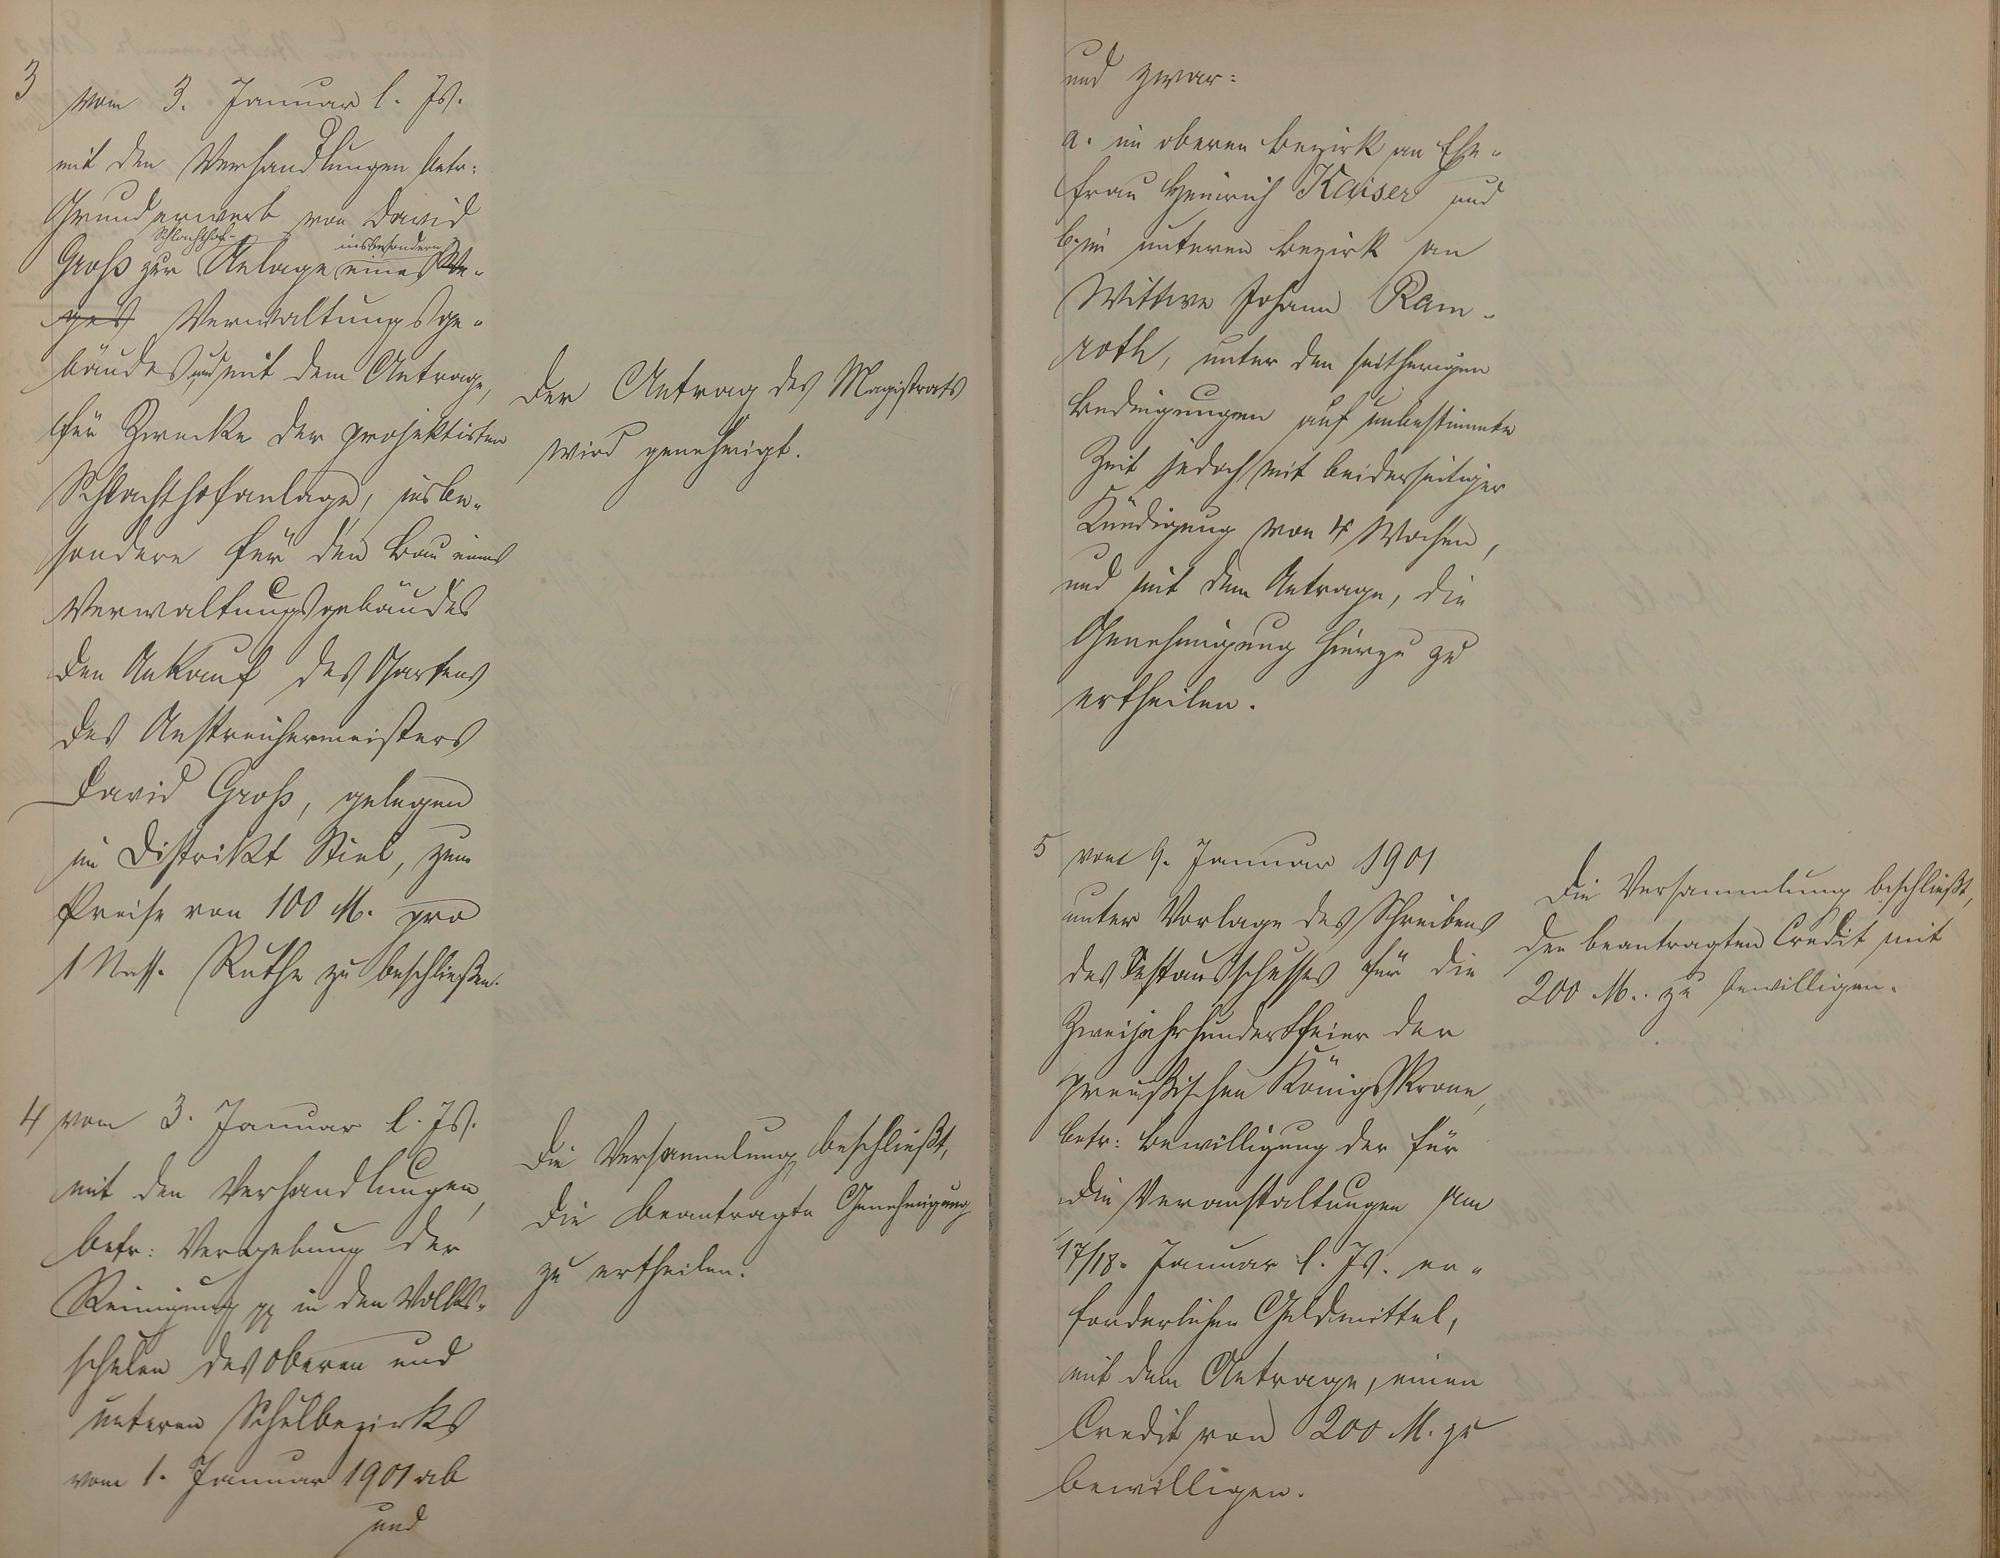 3
vom 3. Januar l. Js.
mit den Verhandlungen betr:
Grunderwerb von David
Schlachthof- insbesondere
Groß zur Anlage eines We-
ges Verwaltungsge-
bäudes und mit dem Antrage,
für Zwecke der projektirten
Schlachthofanlage, insbe-
sondere für den Bau eines
Verwaltungsgebäudes
den Ankauf des Gartens
des Anstreichermeisters
David Groß, gelegen
im Distrikt Kiel, zum
Preise von 100 M. pro
1 Nass. Ruthe zu beschließen.
Der Antrag des Magistrats
wird genehmigt.
4 vom 3. Januar l. Js.
mit den Verhandlungen,
betr: Vergebung der
Reinigung pp in den Volks-
schulen des oberen und
unteren Schulbezirks
vom 1. Januar 1901 ab
und
Die Versammlung beschließt,
die beantragte Genehmigung
zu ertheilen.
und zwar:
a. im oberen Bezirk an Ehe-
frau Heinrich Kaiser und
b. im unteren Bezirk an
Wittwe Johann Ram-
roth, unter den seitherigen
Bedingungen auf unbestimmte
Zeit jedoch mit beiderseitiger
Kündigung von 4 Wochen,
und mit dem Antrage, die
Genehmigung hierzu zu
ertheilen.
5 vom 9. Januar 1901
unter Vorlage des Schreibens
des Festausschusses für die
Zweijahrhundertfeier der
preußischen Königskrone,
betr: Bewilligung der für
die Veranstaltungen am
17/18. Januar l. Js. er-
forderlichen Geldmittel,
mit dem Antrage, einen
Credit von 200 M. zu
bewilligen.
Die Versammlung beschließt,
den beantragten Credit mit
200 M. zu bewilligen.